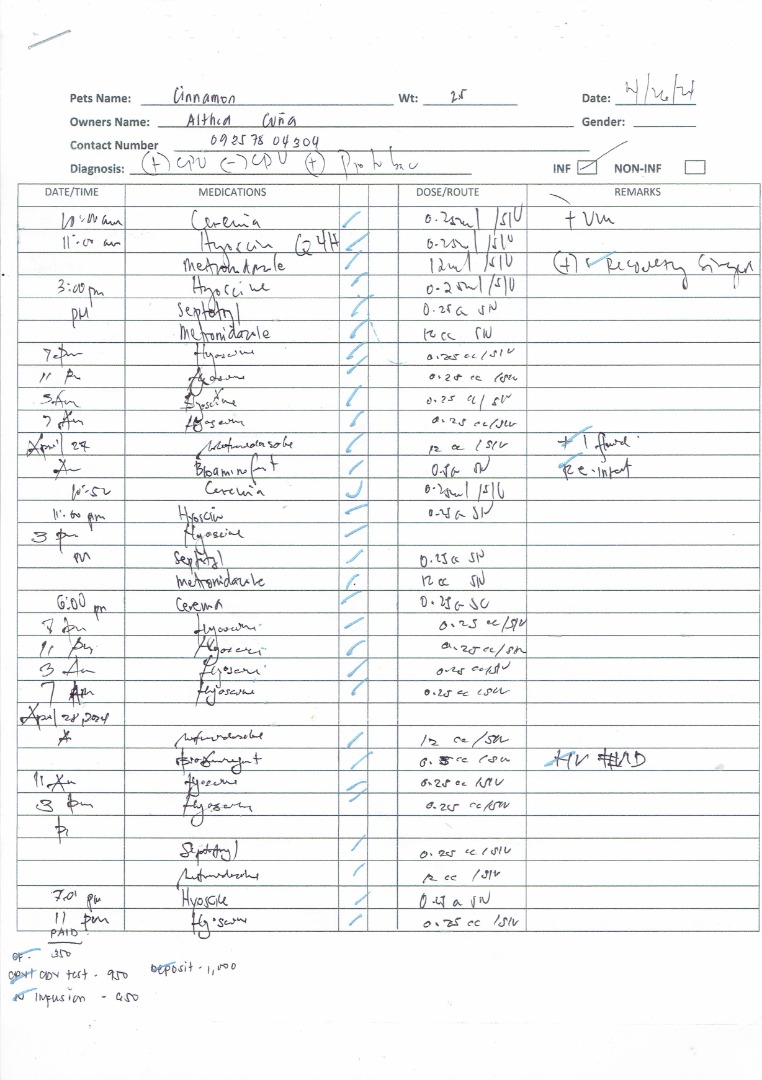 Pets Name: Cinnamon Wt: 25 Date: 4/26/24
Owners Name: Althea Cuña Gender:
Contact Number 0925 78 04304
Diagnosis: (+) CPV (-) CDV (+) INF NON-INF
DATE/TIME MEDICATIONS DOSE/ROUTE REMARKS
10:00 am Cerenia 0.25ml /SIV + Vm
11:00 am Hyoscin Q4H 0.25ml /SIV
Metronidazole 12ml /SIV (+) Recovery
3:00 pm Hyoscine 0.25ml /SIV
PM Septotryl 0.25 cc SIV
Metronidazole 12 cc SIV
7 pm Hyoscine 0.25 cc /SIV
11 pm Hyoscine 0.25 cc /SIV
3 Am Hyoscine 0.25 cc /SIV
7 Am Hyoscine 0.25 cc /SIV
April 27 Metronidazole 12 cc /SIV + 1 fluid
Am 0.5 cc SIV Re-insert
10:50 Cerenia 0.25ml /SIV
11:00 pm Hyoscin 0.25 cc SIV
3 pm Hyoscine
PM Septotryl 0.25 cc SIV
Metronidazole 12 cc SIV
6:00 pm Cerenia 0.25 cc SC
7 pm Hyoscine 0.25 cc /SIV
11 pm Hyoscine 0.25 cc /SIV
3 Am Hyoscine 0.25 cc /SIV
7 Am Hyoscine 0.25 cc /SIV
April 28, 2024
Metronidazole 12 cc /SIV
0.5 cc /SIV
11 Am Hyoscine 0.25 cc /SIV
3 pm Hyoscine 0.25 cc /SIV
Septotryl 0.25 cc /SIV
Metronidazole 12 cc /SIV
7:01 pm Hyoscine SIV
11 pm Hyoscine 0.25 cc /SIV
PAID
350
CPV/CDV test - 950 Deposit - 1,000
IV Infusion - 950